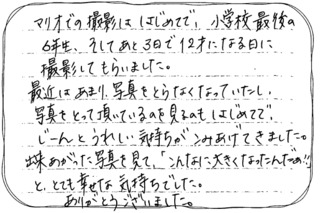 マリオでの撮影は はじめてで、小学校 最後の
6年生、そしてあと3日で12才になる日に
撮影してもらいました。
最近はあまり、写真をとらなくなっていたし、
写真をとって頂いているのを見るのもはじめてで、
じーんとうれしい気持ちがこみあげてきました。
出来あがった写真を見て、「こんなに大きくなったんだぁ!!」
と、とても幸せな気持ちでした。
ありがとうございました。